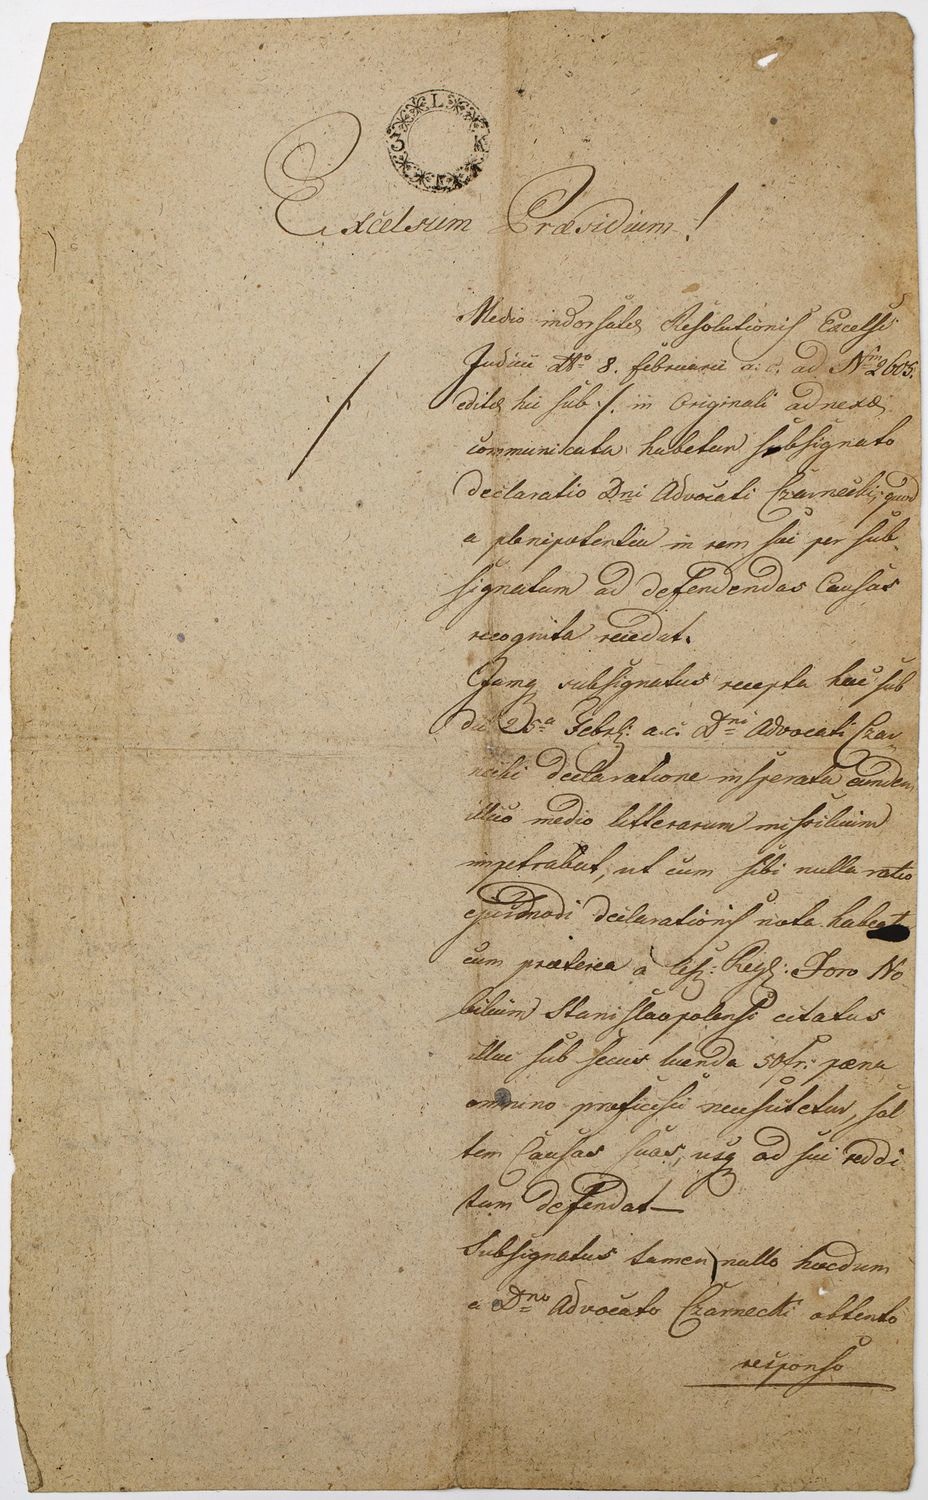 L
3 K
Excelsum Præsidium!
Medio indorsatæ Resolutionis Excelsi
Judicii Dto 8. februarii a: c. ad Nrm 2605.
editæ hic sub ./. in Originali adnexæ
communicata habetur subsignato
declaratio Dni Advocati Czarnecki, quod
a plenipotentia in rem sui per sub-
signatum ad defendendas Causas
recognita recedat.
Jamq subsignatus recepta hac sub
die 25a Febr: a.c: Dni Advocati Czar-
necki declaratione insperata eundem
illico medio litterarum missilium
impetrabat, ut cum sibi nulla ratio
ejusmodi declarationis nota habeat
cum præterea a Cæs: Reg: Foro No-
bilium Stanislaopolensi citatus
illuc sub secus luenda 50 fr: pæna
omnino proficisci necessitetur, sal
tem Causas suas, usq ad sui reddi
tum defendat —
Subsignatus tamen nullo hucdum
a Dno Advocato Czarnecki obtento
responso